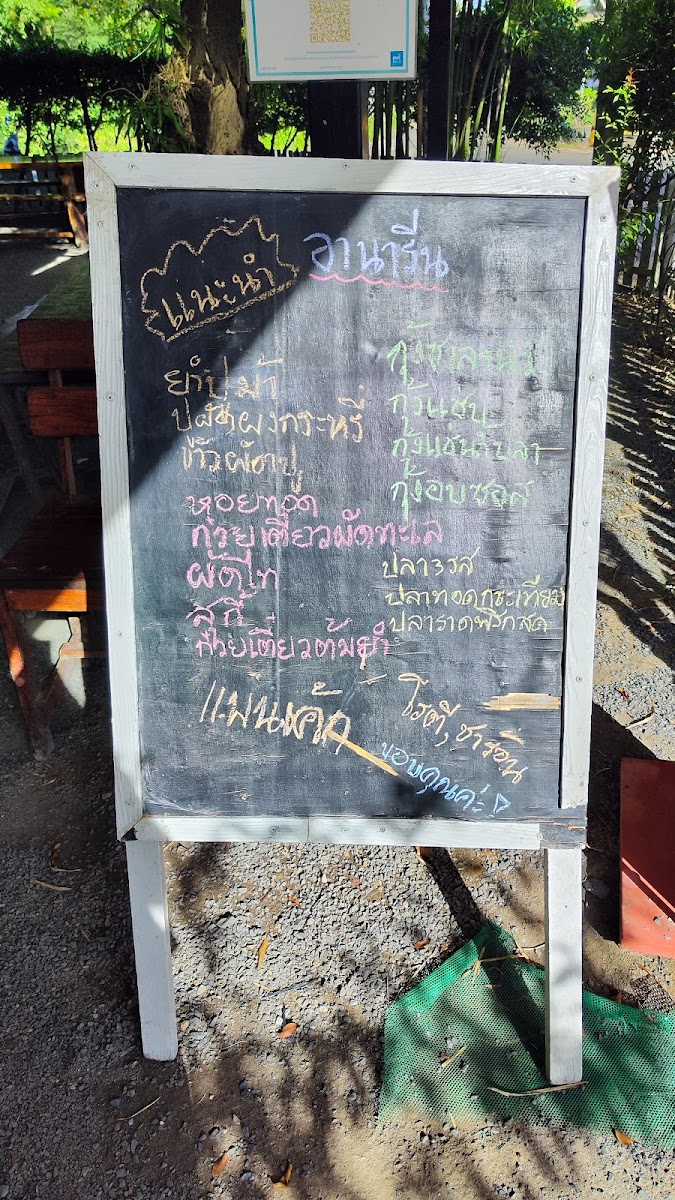 แนะนำ
อานารีน
ยำปูม้า
ปูผัดผงกระหรี่
ข้าวผัดปู
หอยทอด
ก๋วยเตี๋ยวผัดทะเล
ผัดไท
สุกี้
ก๋วยเตี๋ยวต้มยำ
กุ้งแช่น้ำปลา
กุ้งอบซอส
ปลา3รส
ปลาทอดกระเทียม
ปลาราดพริกสด
โรตี, ชาร้อน
ขอบคุณค่ะ